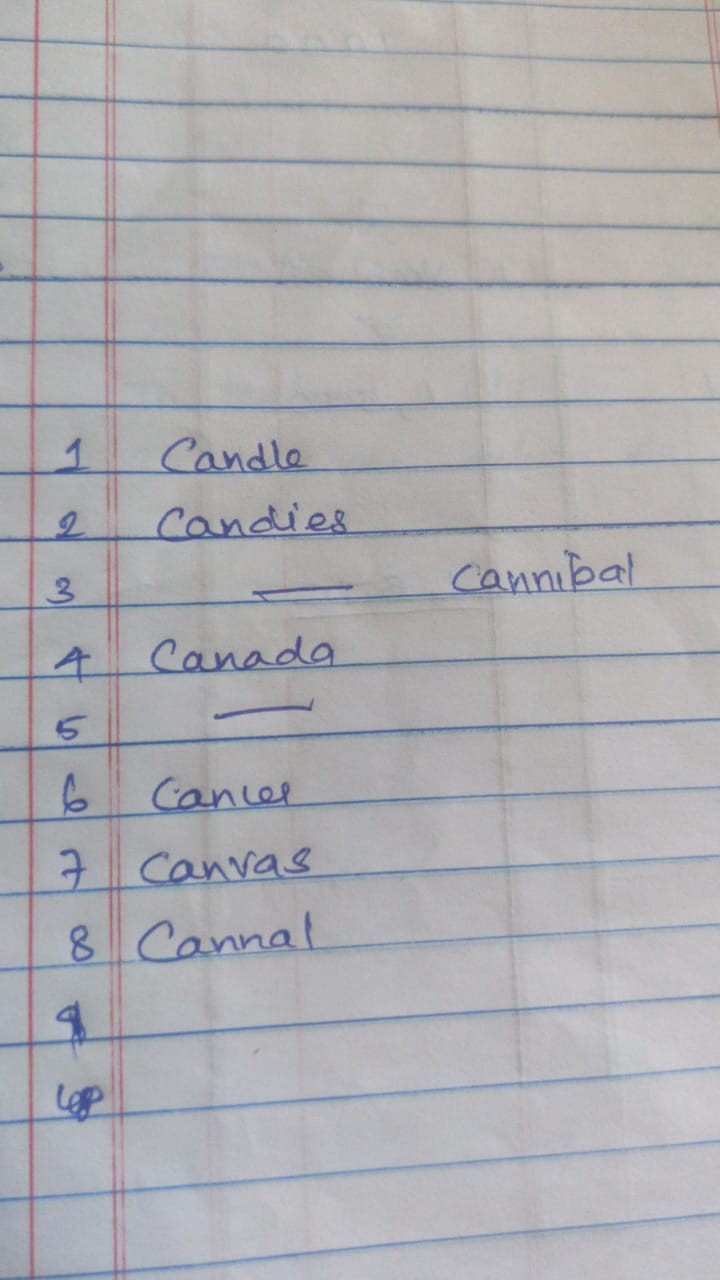 1 Candle
2 Candies
3 — Cannibal
4 Canada
5 —
6 Cancer
7 Canvas
8 Cannal
9